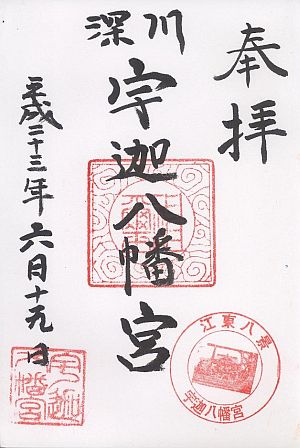 奉拝
深川
宇迦八幡宮
平成二十三年六月十九日
江東八景
宇迦八幡宮
宇迦八幡宮